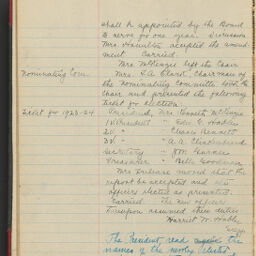 shall be appointed by the Board
to serve for one year. Discussion
Mrs. Hamilton accepted the amend-
ment Carried.
Mrs. McKenzie left the Chair
Nominating Com. Mrs. F. A. Clark, Chairman of
the Nominating Committee took the
Chair and presented the following
ticket for election.
Ticket for 1923-24 President, Mrs. Kenneth McKenzie
1st President " Edw. C. Hoble
2d " " Chase Bennett
3d " " A. R.
Secretary " H. M.
Treasurer " Belle Goodman
Mrs. moved that the
report be accepted and
officers elected as presented.
Carried. The new officers
thereupon assumed their duties
Harriet W. Hoble
Sec'y.
The President read the
names of the newly elected